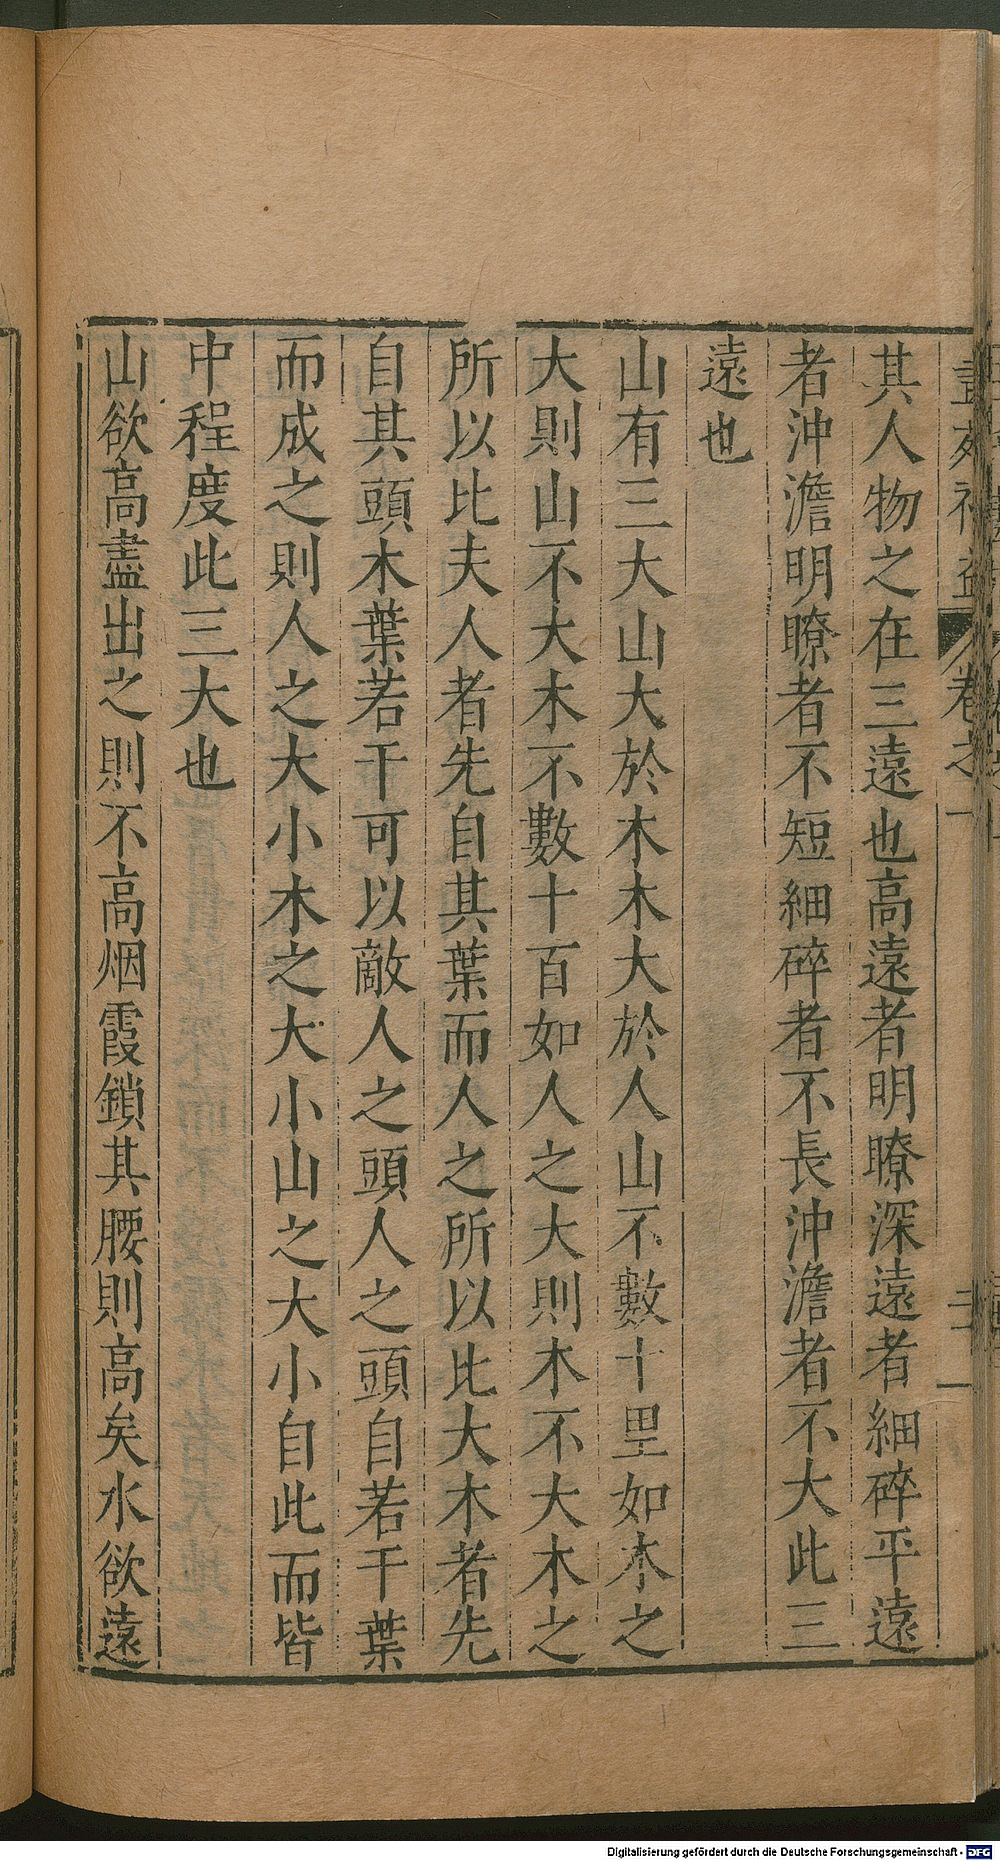 畫苑補益 卷之一 三
其人物之在三遠也高遠者明瞭深遠者細碎平遠
者沖澹明瞭者不短細碎者不長沖澹者不大此三
遠也
山有三大山大於木木大於人山不數十里如木之
大則山不大木不數十百如人之大則木不大木之
所以比夫人者先自其葉而人之所以比大木者先
自其頭木葉若干可以敵人之頭人之頭自若干葉
而成之則人之大小木之大小山之大小自此而皆
中程度此三大也
山欲高盡出之則不高烟霞鎖其腰則高矣水欲遠
Digitalisierung gefördert durch die Deutsche Forschungsgemeinschaft - DFG